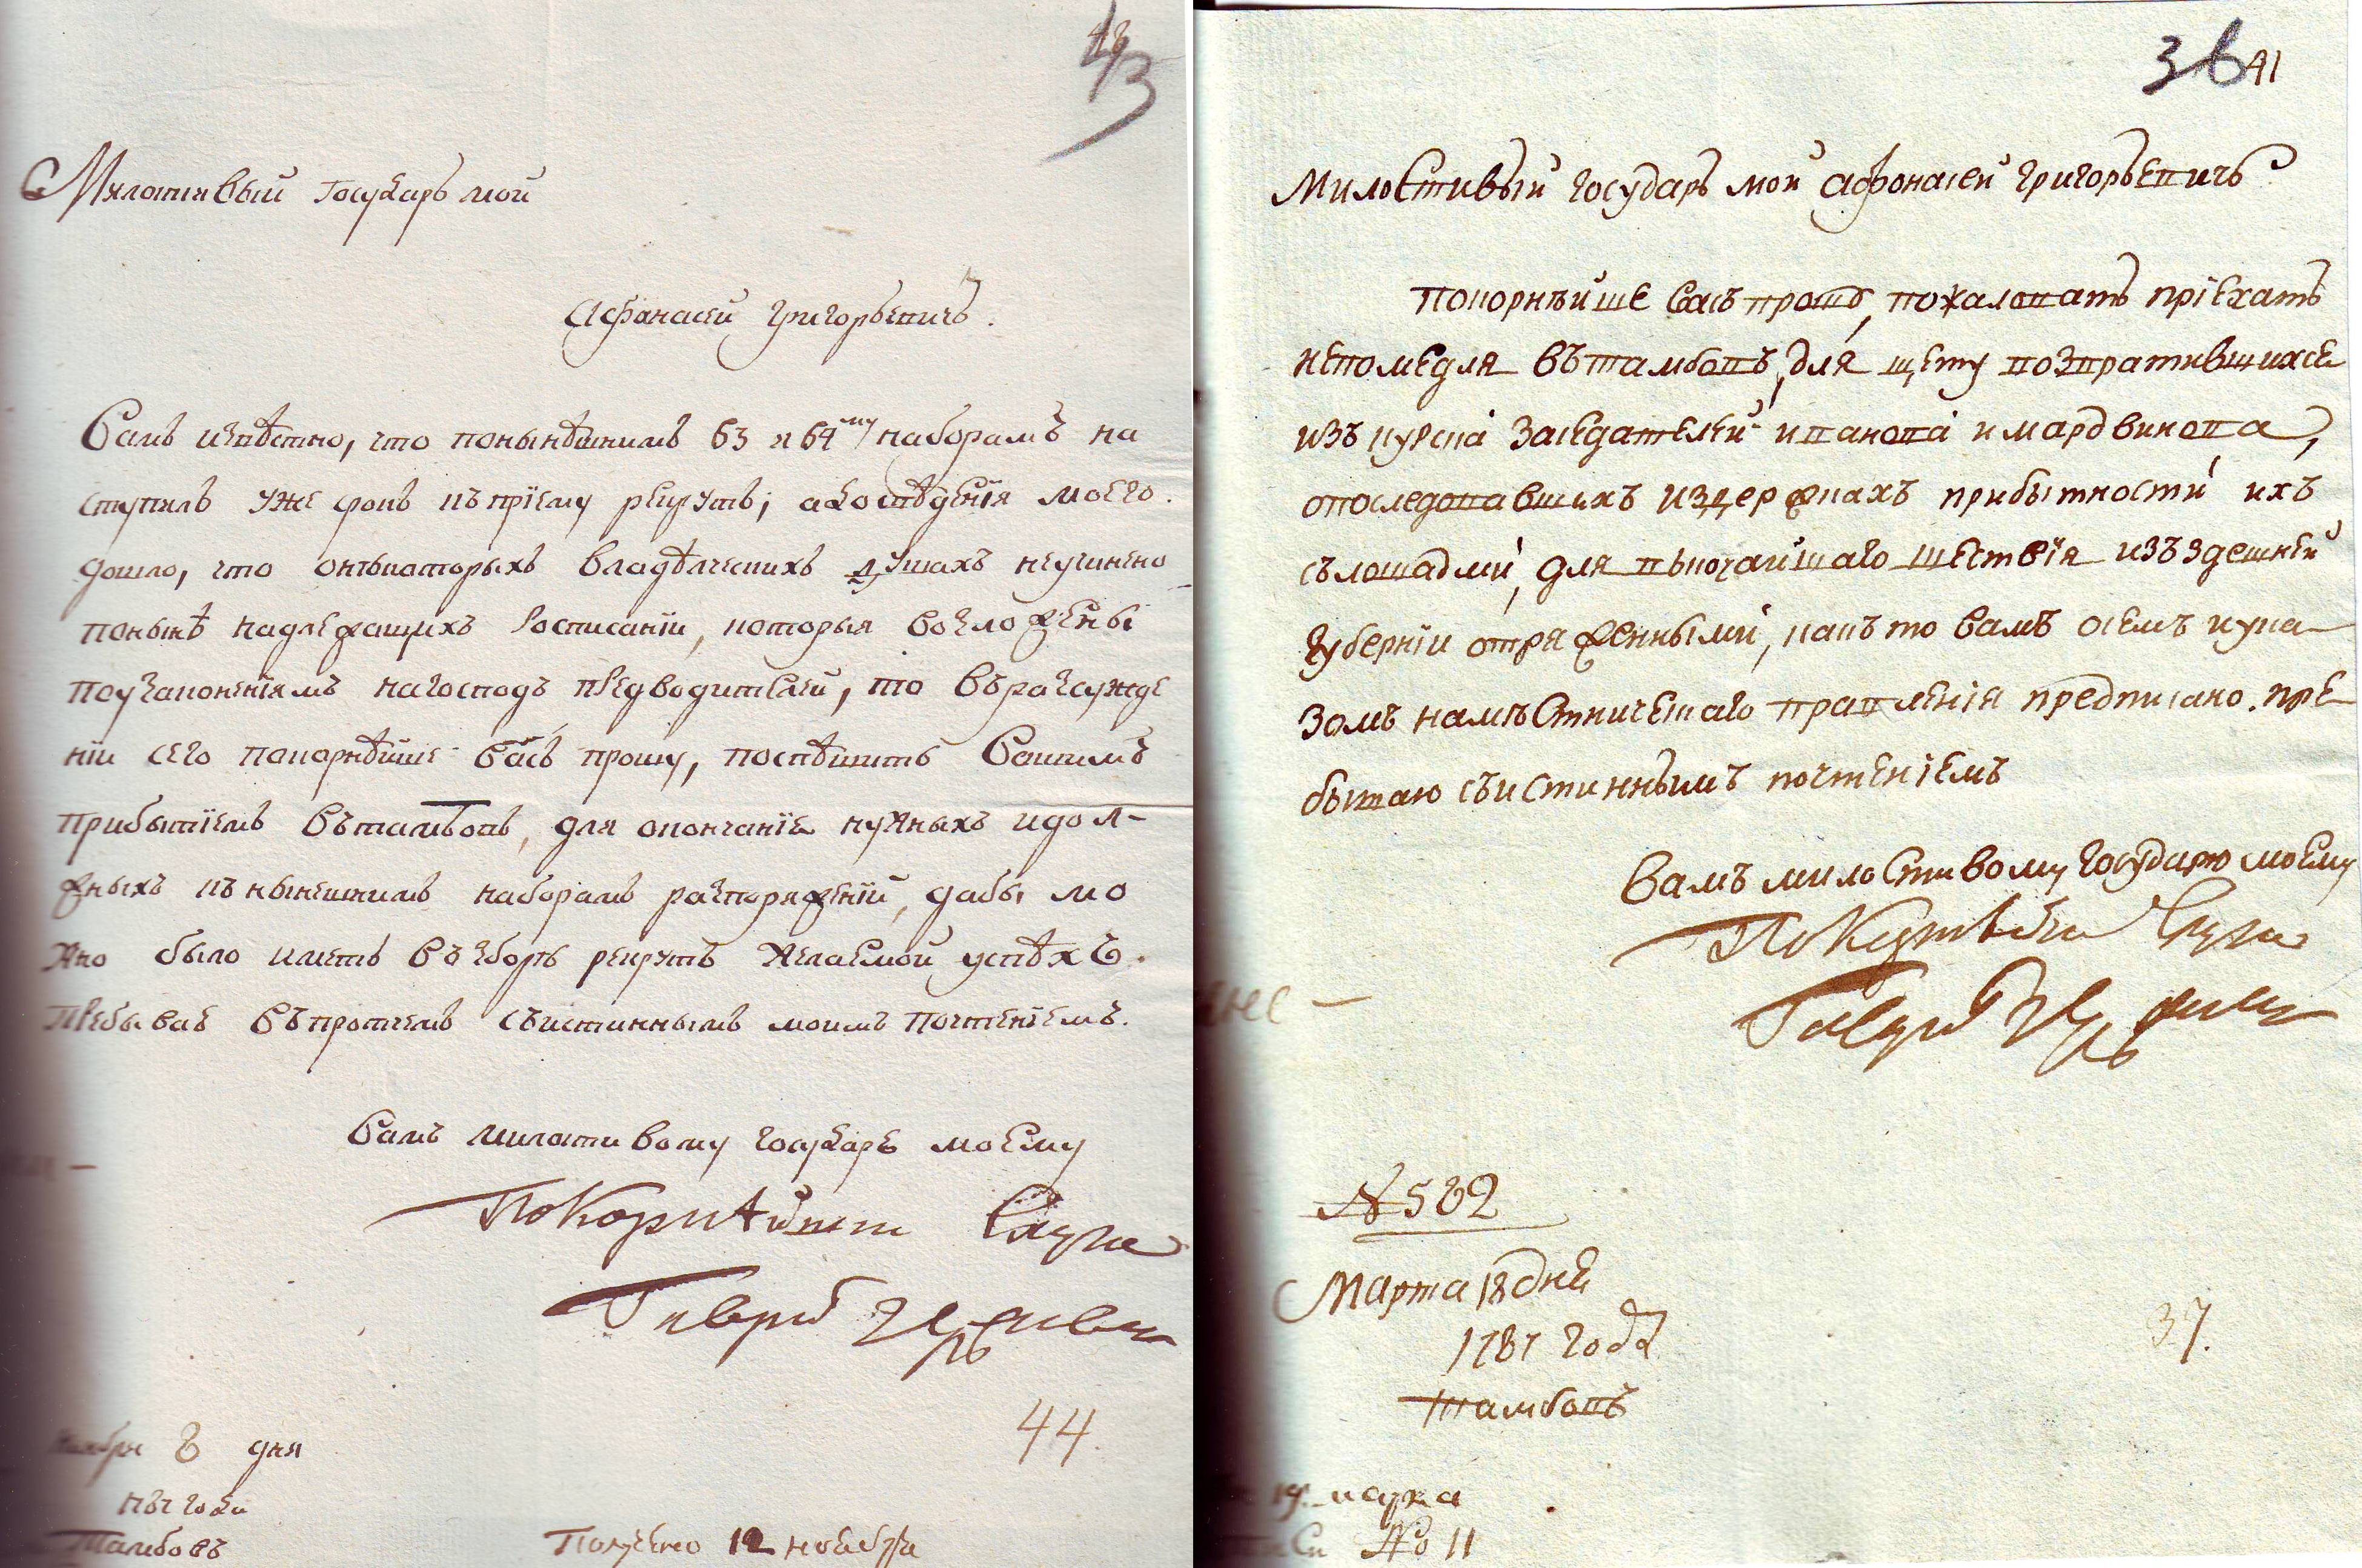 43
Милостивый Государь мой
Афанасей Григорьевичь.
Вамъ извѣстно, что понынѣшнимъ 63 и 64му наборамъ на
ступилъ уже рокъ къ прїему рекрутъ; адосвѣденїя моего
дошло, что онѣкоторыхъ владѣлческихъ душахъ неучинено
понынѣ надлежащихъ Росписанїи, которыя возложены
поузаконенїямъ нагосподъ предводителей, то въразсужде
нїи сего покорнѣйше васъ прошу, поспѣшить Вашимъ
прибытїемъ вътамбовъ, для окончанїе нужныхъ идол-
жныхъ къ нынешнимъ наборамъ распоряженїй, дабы мо
жно было иметь въ зборѣ рекрутъ желаемой успѣхъ.
Пребываю въпротчемъ съистиннымъ моимъ почтенїемъ.
Вамъ милостивому государю моему
Покорнѣйший Слуга
Гаврил Державин
44.
Ноября 8 дня
1787 года
Тамбовъ
Получено 12 ноября
36 41
Милостивый государь мой афонасей григорьевичь
Покорнѣйше васъ прошю, пожаловать прїехать
непомедля вътамбовъ, для щету возвратившихсе
изъ курска заседателей ивановa и мардвинова,
опоследовавшихъ издержкахъ прибытности ихъ
сълошадми, для высочайшаго шествїя изъ здешней
губернїи отряженными, какъ то вамъ осемъ ука-
зомъ намѣстническаго правленїя предписано. пре-
бываю съистиннымъ почтенїемъ
Вамъ милостивому государю моему
Покорнѣйший Слуга
Гаврил Державин
№ 582
Марта 18 дня
1787 года
тамбовъ
37.
19. марта
№ 11